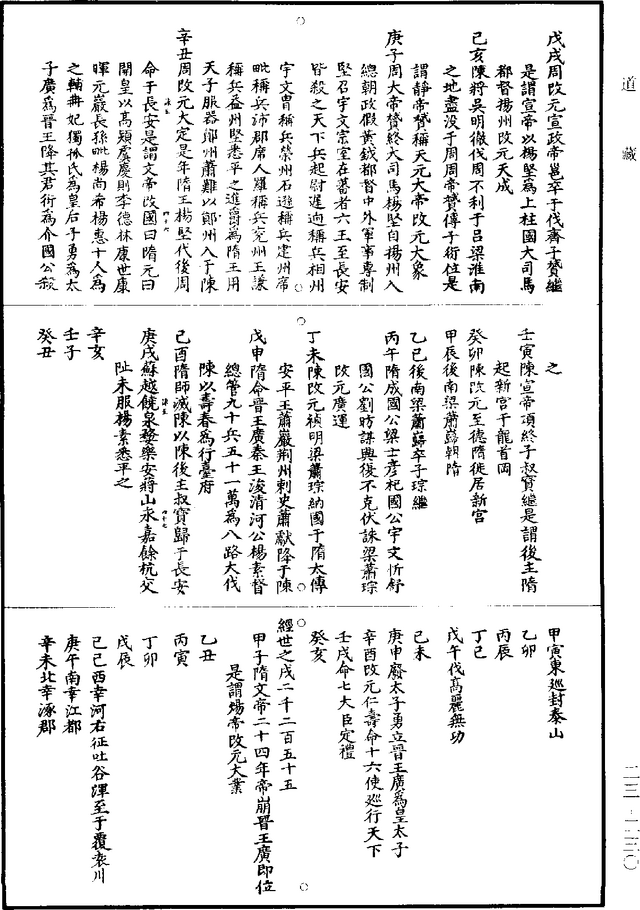 道藏
戊戌周改元宣政帝邕卒于伐齊子贇繼
是謂宣帝以楊堅為上柱國大司馬
都督揚州改元天成
己亥陳將吳明徹伐周不利于呂梁淮南
之地盡没于周周帝贇傳子衍位是
謂靜帝贇稱天元大帝改元大象
庚子周大帝贇終大司馬楊堅自揚州入
總朝政假黃鉞都督中外軍事專制
堅召宇文宗室在蕃者六王至長安
皆殺之天下兵起尉遲迥稱兵相州
宇文胄稱兵滎州石遜稱兵建州席
毗稱兵沛郡席人羅稱兵兗州王謙
稱兵益州堅悉平之進爵為隋王用
天子服器鄖州蕭難以鄖州入于陳
辛丑周改元大定是年隋王楊堅代後周
命于長安是謂文帝改國曰隋元曰
開皇以高熲虞慶則李德林康世康
暉元巖長孫毗楊尚希楊惠十人為
之輔冊妃獨孤氏為皇后子勇為太
子廣為晉王降其君衍為介國公殺
之
壬寅陳宣帝頊終子叔寶繼是謂後主隋
起新宫于龍首岡
癸卯陳改元至德隋徙居新宫
甲辰後南梁蕭巋朝隋
乙巳後南梁蕭巋卒子琮繼
丙午隋成國公梁士彥杞國公宇文忻舒
國公劉昉謀興復不克伏誅梁蕭琮
改元廣運
丁未陳改元禎明梁蕭琮納國于隋太傅
安平王蕭巖荊州刺史蕭獻降于陳
戊申隋命晉王廣秦王浚清河公楊素督
總管九十兵五十一萬為八路大伐
陳以壽春為行臺府
己酉隋師滅陳以陳後主叔寶歸于長安
庚戌蘇越饒泉婺樂安蔣山永嘉餘杭交
趾未服楊素悉平之
辛亥
壬子
癸丑
甲寅東巡封泰山
乙卯
丙辰
丁巳
戊午伐高麗無功
己未
庚申廢太子勇立晉王廣為皇太子
辛酉改元仁壽命十六使巡行天下
壬戌命七大臣定禮
癸亥
經世之戌二千二百五十五
甲子隋文帝二十四年帝崩晉王廣即位
是謂煬帝改元大業
乙丑
丙寅
丁卯
戊辰
己巳西幸河右征吐谷渾至于覆袁川
庚午南幸江都
辛未北幸涿郡
二三-二三〇